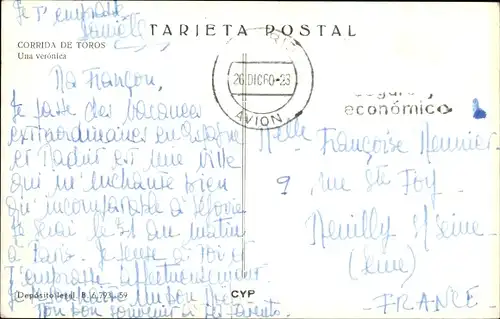 Je t'embrasse
TARJETA POSTAL
CORRIDA DE TOROS
Una verónica
26.DIC60-23
AVION
económico
Ma Françou,
Je passe des vacances
extraordinaires en Espagne
et Madrid est une ville
qui m'enchante bien
qu'incomparable à
Je serai le 31 au matin
à Paris. Je pense à toi et
t'embrasse affectueusement
mon bon souvenir à tes parents.
Melle Françoise Meunier
9, rue Ste Foy
Neuilly s/ Seine
(Seine)
- FRANCE -
Depósito legal B. 6.793-59
CYP